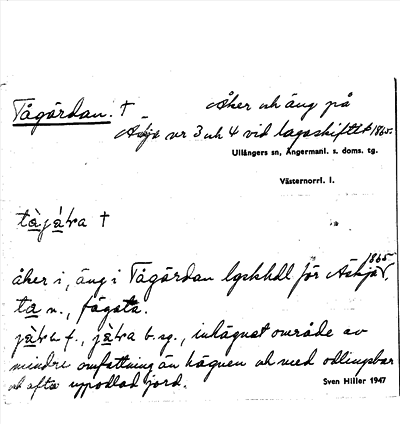 Tågärdan. † Åker och äng på
Äskja nr 3 och 4 vid lagaskiftet 1865.
Ullångers sn, Ångermanl. s. doms. tg.
Västernorrl. l.
tàjàɫra †
åker i, äng i Tågärdan lgskhdl för Äskja, 1865.
ta n., fägata.
jàɫra f., jàɫra b. sg., inhägnat område av
mindre omfattning än hägnen och med odlingsbar
och ofta uppodlad jord.
Sven Hiller 1947